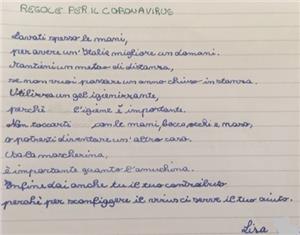 REGOLE PER IL CORONAVIRUS
Lavati spesso le mani,
per avere un'Italia migliore un domani.
Mantieni un metro di distanza,
se non vuoi passare un anno chiuso in stanza.
Utilizza un gel igienizzante,
perchè l'igiene è importante.
Non toccarti con le mani, bocca, occhi e naso,
o potresti diventare un'altro caso.
Usa la mascherina,
è importante quanto l'amuchina.
Infine dai anche tu il tuo contributo
perchè per sconfiggere il virus ci serve il tuo aiuto.
Lisa